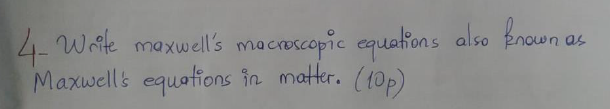 4- Write maxwell's macroscopic equations also known as
Maxwell's equations in matter. (10p)